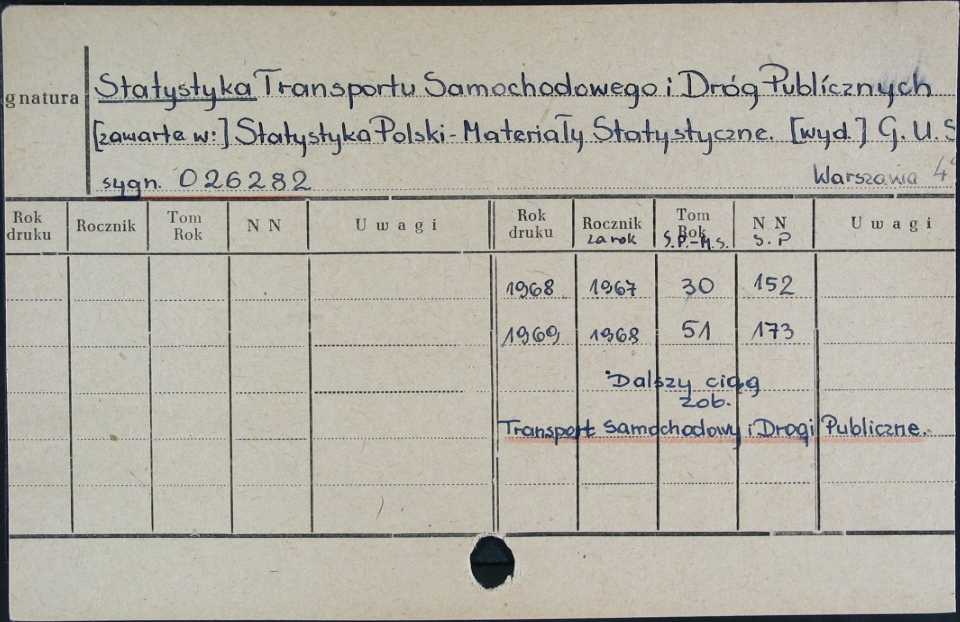 gnatura Statystyka Transportu Samochodowego i Dróg Publicznych
[zawarte w:] Statystyka Polski-Materiały Statystyczne. [wyd.] G. U. S
sygn. 026282 Warszawa
Rok druku Rocznik Tom Rok N N Uwagi Rok druku Rocznik za rok Tom Rok S.P.-M.S. N N S.P Uwagi
1968 1967 30 152
1969 1968 51 173
Dalszy ciąg
zob.
Transport Samochodowy i Drogi Publiczne.